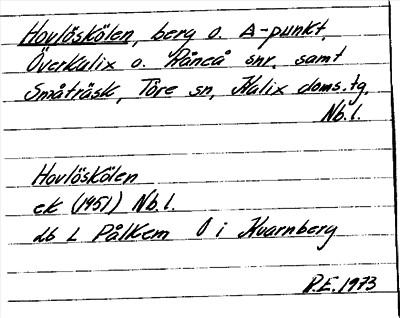 Hovlöskölen, berg o. A-punkt,
Överkalix o. Råneå snr. samt
Småträsk, Töre sn, Kalix doms.tg.
Nb.l.
Hovlöskölen
ek (1951) Nb.l.
db L Pålkem i Kvarnberg
P.E. 1973